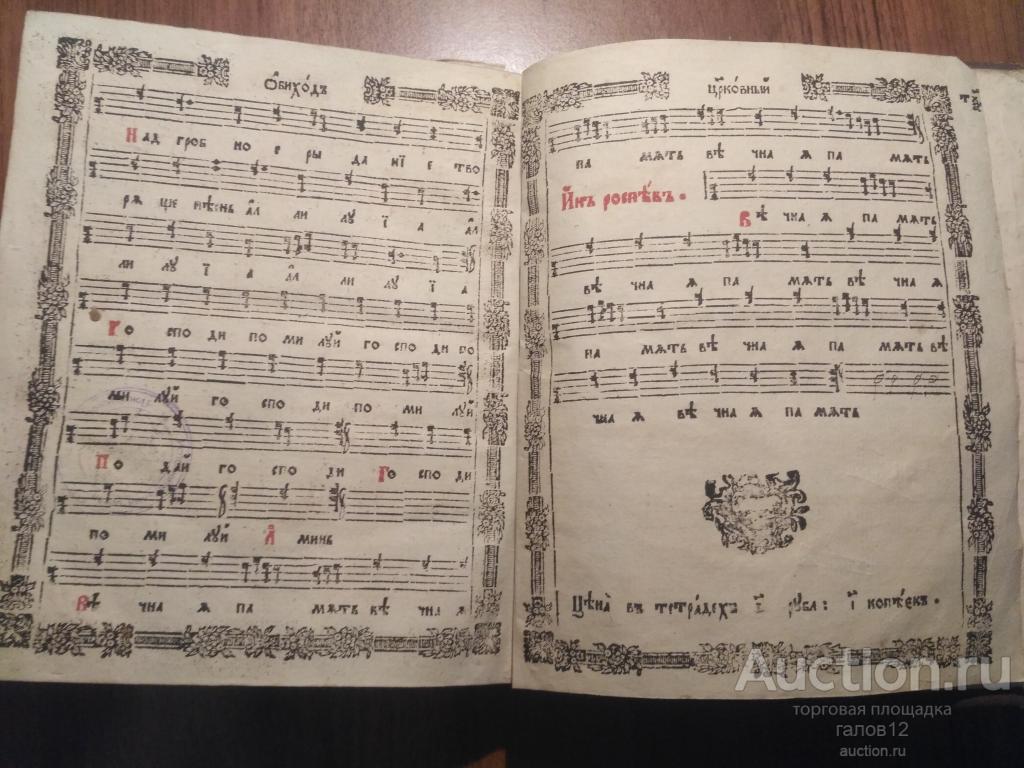 Обихо́дъ
Над гроб но е ры да нї е тво
ря ще пѣснь ал ли лу ї а ал
ли лу ї а ал ли лу ї а
Го спо ди по ми луй го спо ди по
ми луй го спо ди по ми луй
По дай го спо ди Го спо ди
по ми луй А минь
Вѣ чна ѧ па мѧть вѣ чна ѧ
црко́вный
па мѧть вѣ чна ѧ па мѧть
И҆́нъ роспѣ́въ.
Вѣ чна ѧ па мѧть
вѣ чна ѧ па мѧть вѣ чна ѧ
па мѧть вѣ чна ѧ па мѧть вѣ
чна ѧ вѣ чна ѧ па мѧть
Цѣна̀ въ тетра́дехъ рубл: ї копѣекъ.
Auction.ru
торговая площадка
галов12
auction.ru